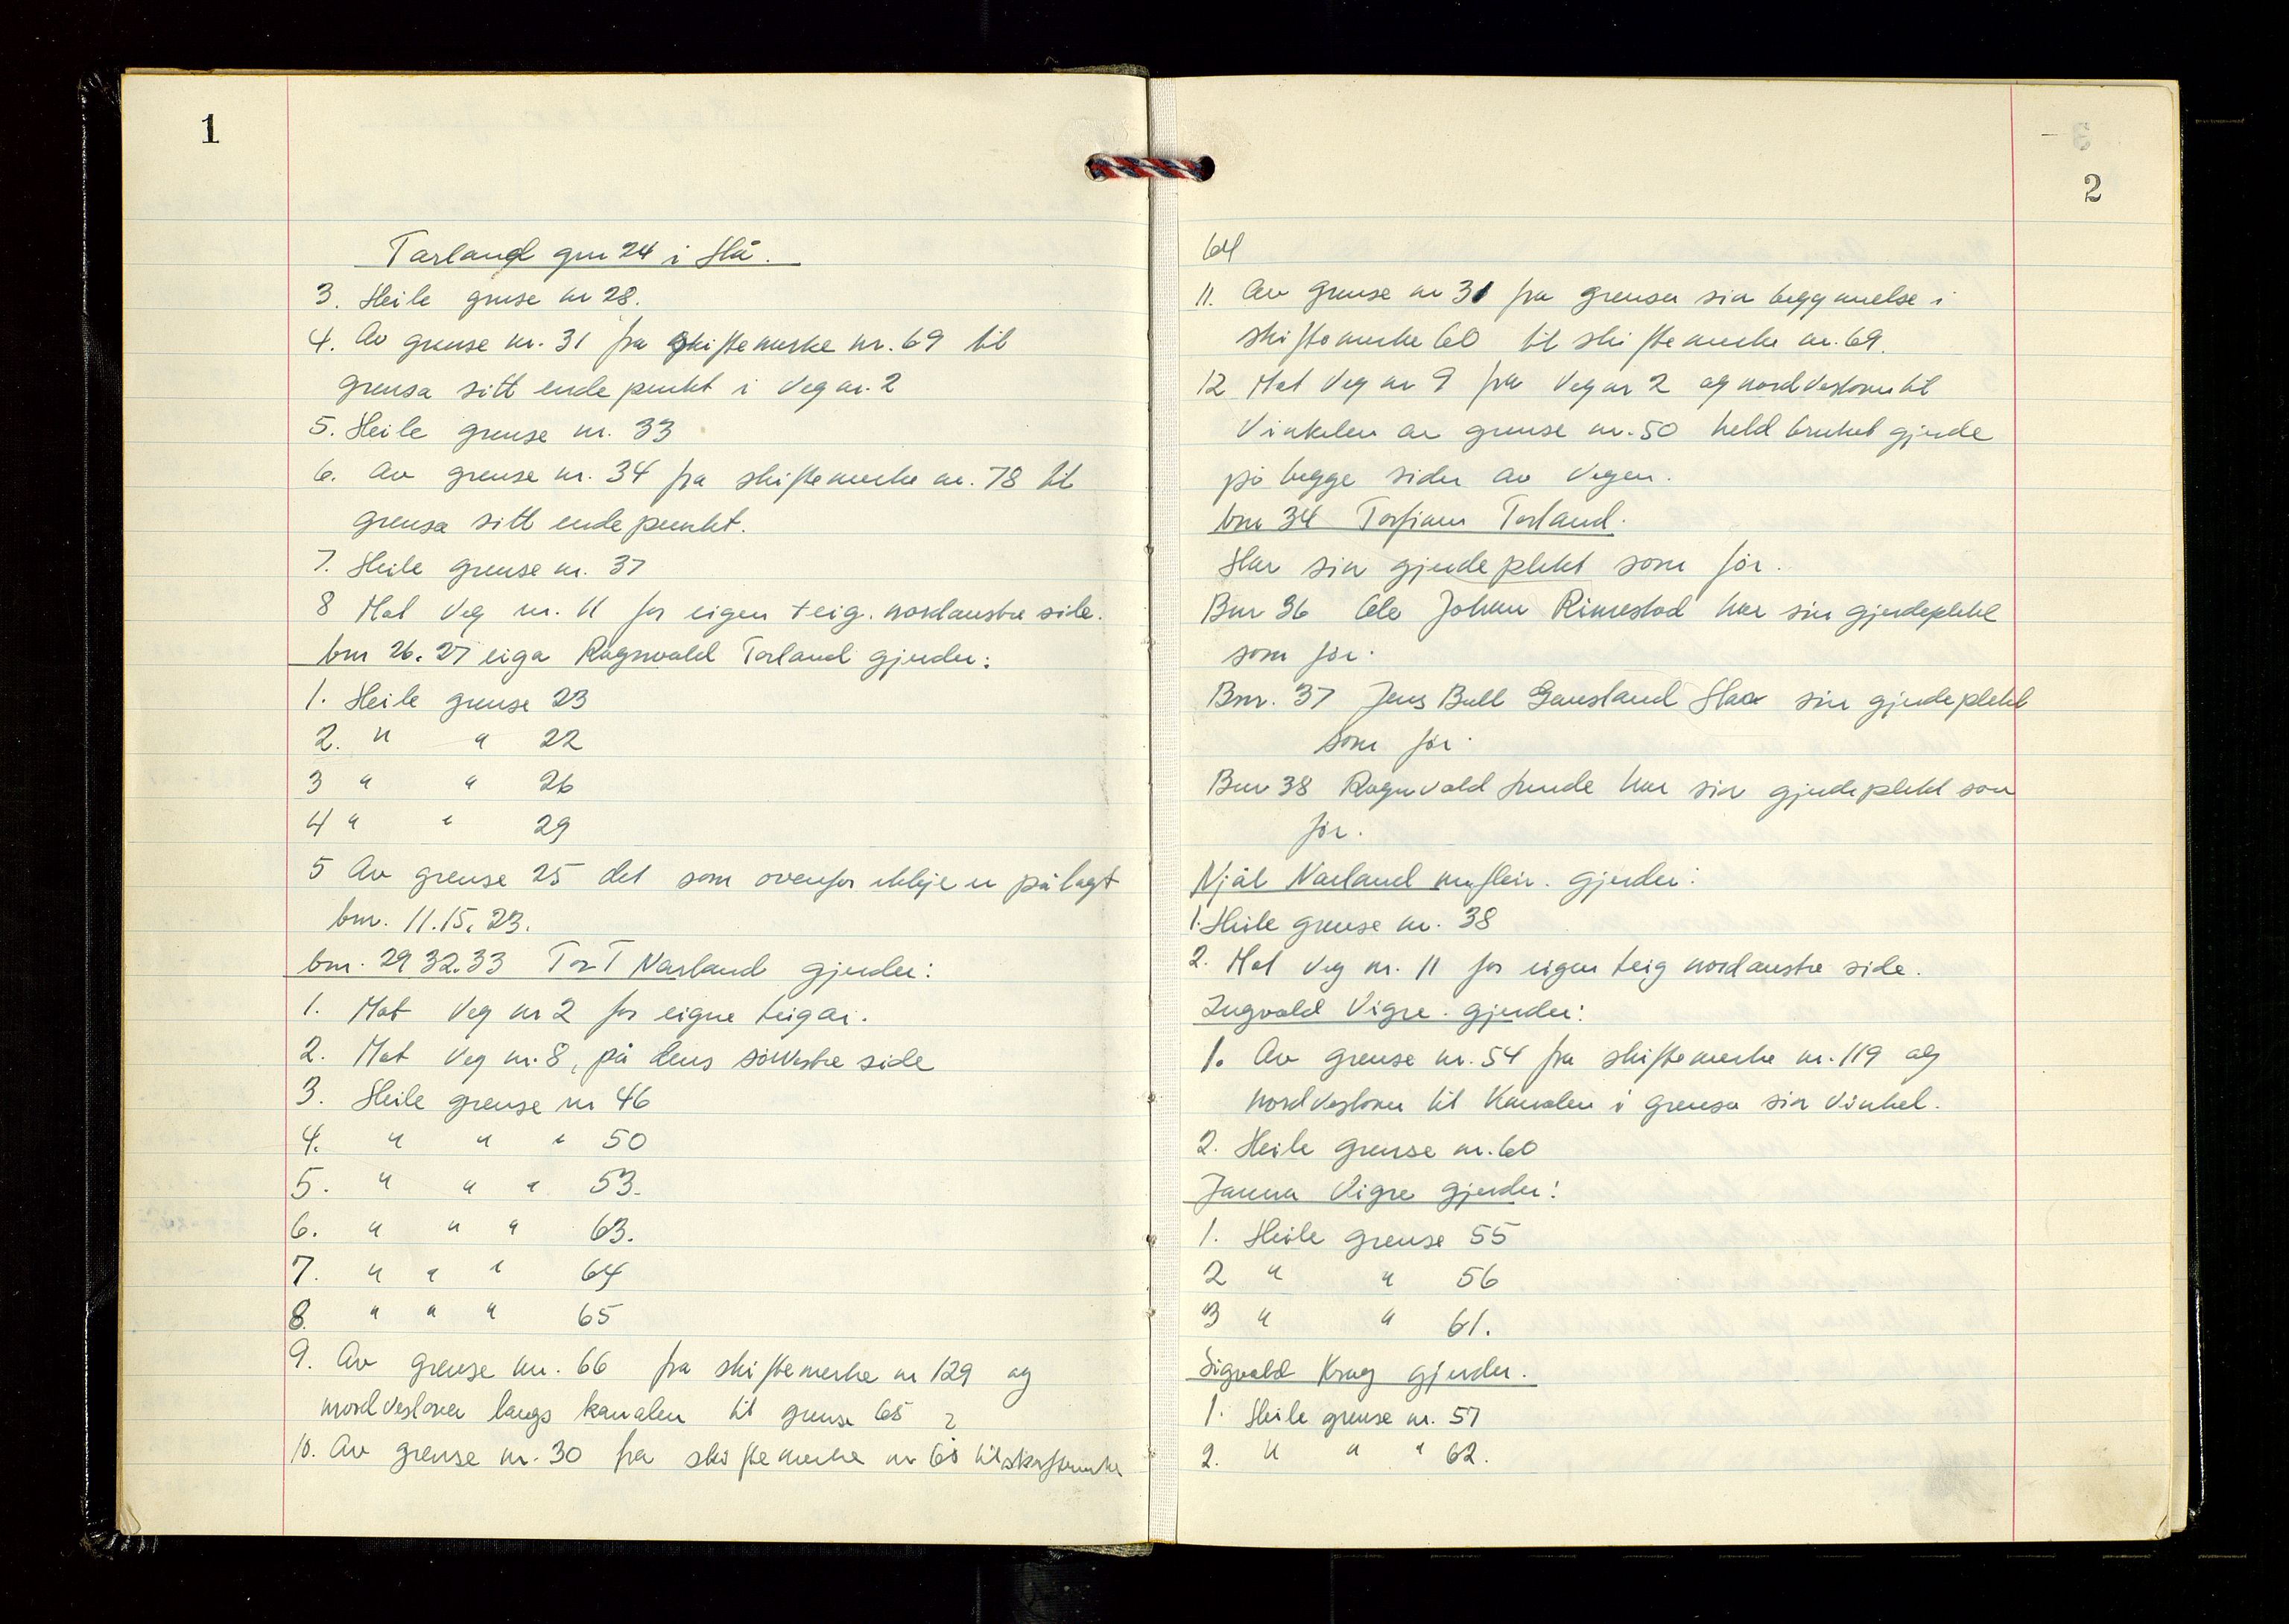 1
Tarland gnr 24 i Hå.
3. Heile grense nr 28.
4. Av grense nr. 31 fra skiftemerke nr. 69 til
grensa sitt endepunkt i Veg nr. 2
5. Heile grense nr. 33
6. Av grense nr. 34 fra skiftemerke nr. 78 til
grensa sitt endepunkt.
7. Heile grense nr. 37
8 Mot Veg nr. 11 for eigen teig. nordaustre side.
bnr 26. 27 eiga Ragnvald Torland gjerder:
1. Heile grense 23
2. " " 22
3 " " 26
4 " " 29
5 Av grense 25 det som ovenfor ikkje er pålagt
bnr. 11. 15. 23.
bnr. 29 32. 33 Tor T Narland gjerder:
1. Mot Veg nr 2 for eigne teigar.
2. Mot Veg nr. 8, på dens sörvestre side
3. Heile grense nr 46
4. " " " 50
5. " " " 53.
6. " " " 63.
7. " " " 64
8. " " " 65
9. Av grense nr. 66 fra skiftemerke nr 129 og
nordvestover langs kanalen til grense 65
10. Av grense nr. 30 fra skiftemerke nr 60 til skiftemerke
2
64
11. Av grense nr 31 fra grensa sin begynnelse i
skiftemerke 60 til skiftemerke nr. 69.
12 Mot Veg nr 9 fra Veg nr 2 og nordvestover til
Vinkelen av grense nr. 50 held bruket gjerde
på begge sider av Vegen.
bnr 34 Torfinn Torland.
Har sin gjerdeplikt som för.
Bnr 36 Ole Johan Rimestad har sin gjerdeplikt
som för.
Bnr. 37 Jens Bull Gausland Har sin gjerdeplikt
som för.
Bnr 38 Ragnvald Lunde har sin gjerdeplikt som
för.
Njål Narland m. fleir. gjerder:
1. Heile grense nr. 38
2. Mot Veg nr. 11 for eigen teig nordaustre side.
Ingvald Vigre. gjerder:
1. Av grense nr. 54 fra skiftemerke nr. 119 og
nordvestover til Kanalen i grensa sin vinkel.
2. Heile grense nr. 60
Janna Vigre gjerder:
1. Heile grense 55
2 " " 56
3 " " 61.
Sigvald Krag gjerder.
1. Heile grense nr. 57
2. " " " 62.